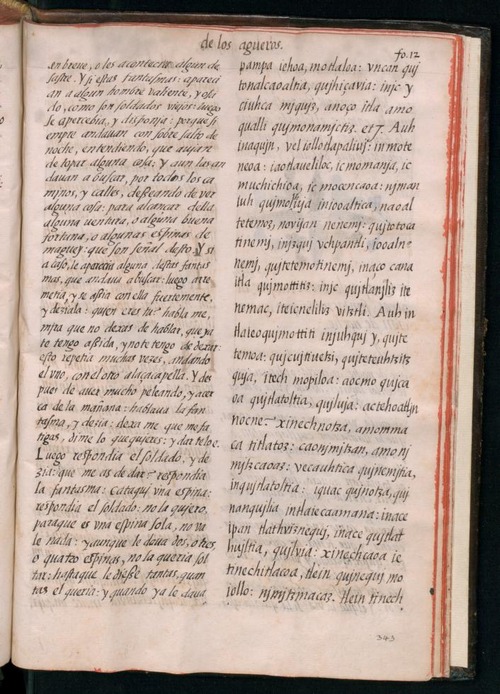 de los agueros.
fo. 12
an breue, o les acontecer algun de
sastre. Y si estas fantasmas: apareci
an a algun hombre valiente, y osa
do, como son soldados viejos: luego
se apercebia, y disponja: porque si
empre andauan con sobre salto de
noche, entendiendo, que aujan
de topar alguna cosa, y aun las an
dauan a buscar, por todos los ca
mjnos, y calles, desseando de ver
alguna cosa: para alcançar della
alguna ventura, o alguna buena
fortuna, o algunas espinas de
maguey: que son señal desto. Y si
a caso, le aparecia alguna, destas fantas
mas, que andaua a buscar: luego arre
metia, y se asia con ella fuertemente,
y deziala: quien eres tu? habla me,
mjra que no dexes de hablar, que ya
te tengo asida, y no te tengo de dexar:
esto repetia muchas vezes, andando
el vno, con el otro a la sacapella. Y des
pues de auer mucho peleado, ya cer
ca de la mañana: hablaua la fan
tasma, y dezia: dexa me que me fa
tigas, dime lo que quieres: y dartelo e.
Luego respondia el soldado, y de
zia: que me as de dar? respondia
la fantasma: cataquj vna espina:
respondia el soldado: no la qujero,
paraque es vna espina sola, no va
le nada: y aunque le daua dos, o tres,
o quatro espinas, no la queria sol
tar: hastaque le diesse tantas, quan
tas el queria: y quando ya le daua
pampa iehoa, motlaloa: vncan quj
tonalcaoaltia, qujhiçavia: injc y
ciuhca mjqujz, anoço itla amo
qualli qujmonamjctiz. etz. Auh
inaqujn, vel iollotlapaliuj: in mote
neoa: iaotlaueliloc, ic momanja, ic
muchichioa, ic mocencaoa: njman
iuh qujmottitia injooaltica, naoal
tetemoz, novijan nenemj: qujtotoca
tinemj, injzquj vchpantli, iooaln
nemj, qujtetemotinemj, inaço cana
itla qujmottitiz: injc qujtlanjliz ite
nemac, iteicneliliz vitztli. Auh in
tlaieoqujmottiti injuhquj y, qujte
temoa: qujcujtiuetzi, qujteteuhtzitz
quja, itech mopiloa: aocmo qujca
oa, qujtlatoltia, qujlvia: ac tehoatl yn
nocne? xinechnotza, amo mma
ca titlatoz: ca onjmjtzan, amo nj
mjtzcaoaz: vecauhtica qujnemjtia,
inqujtlatoltia: iquac qujnotza, quj
nanqujlia in tlaiecaannana: inace
ipan tlathviznequj, inace qujtlat
hujltia, qujlvia: xinechcaoa ie
tinechitlacoa, tlein qujnequj mo
iollo: njmjtzmacaz. tlein tinech
343